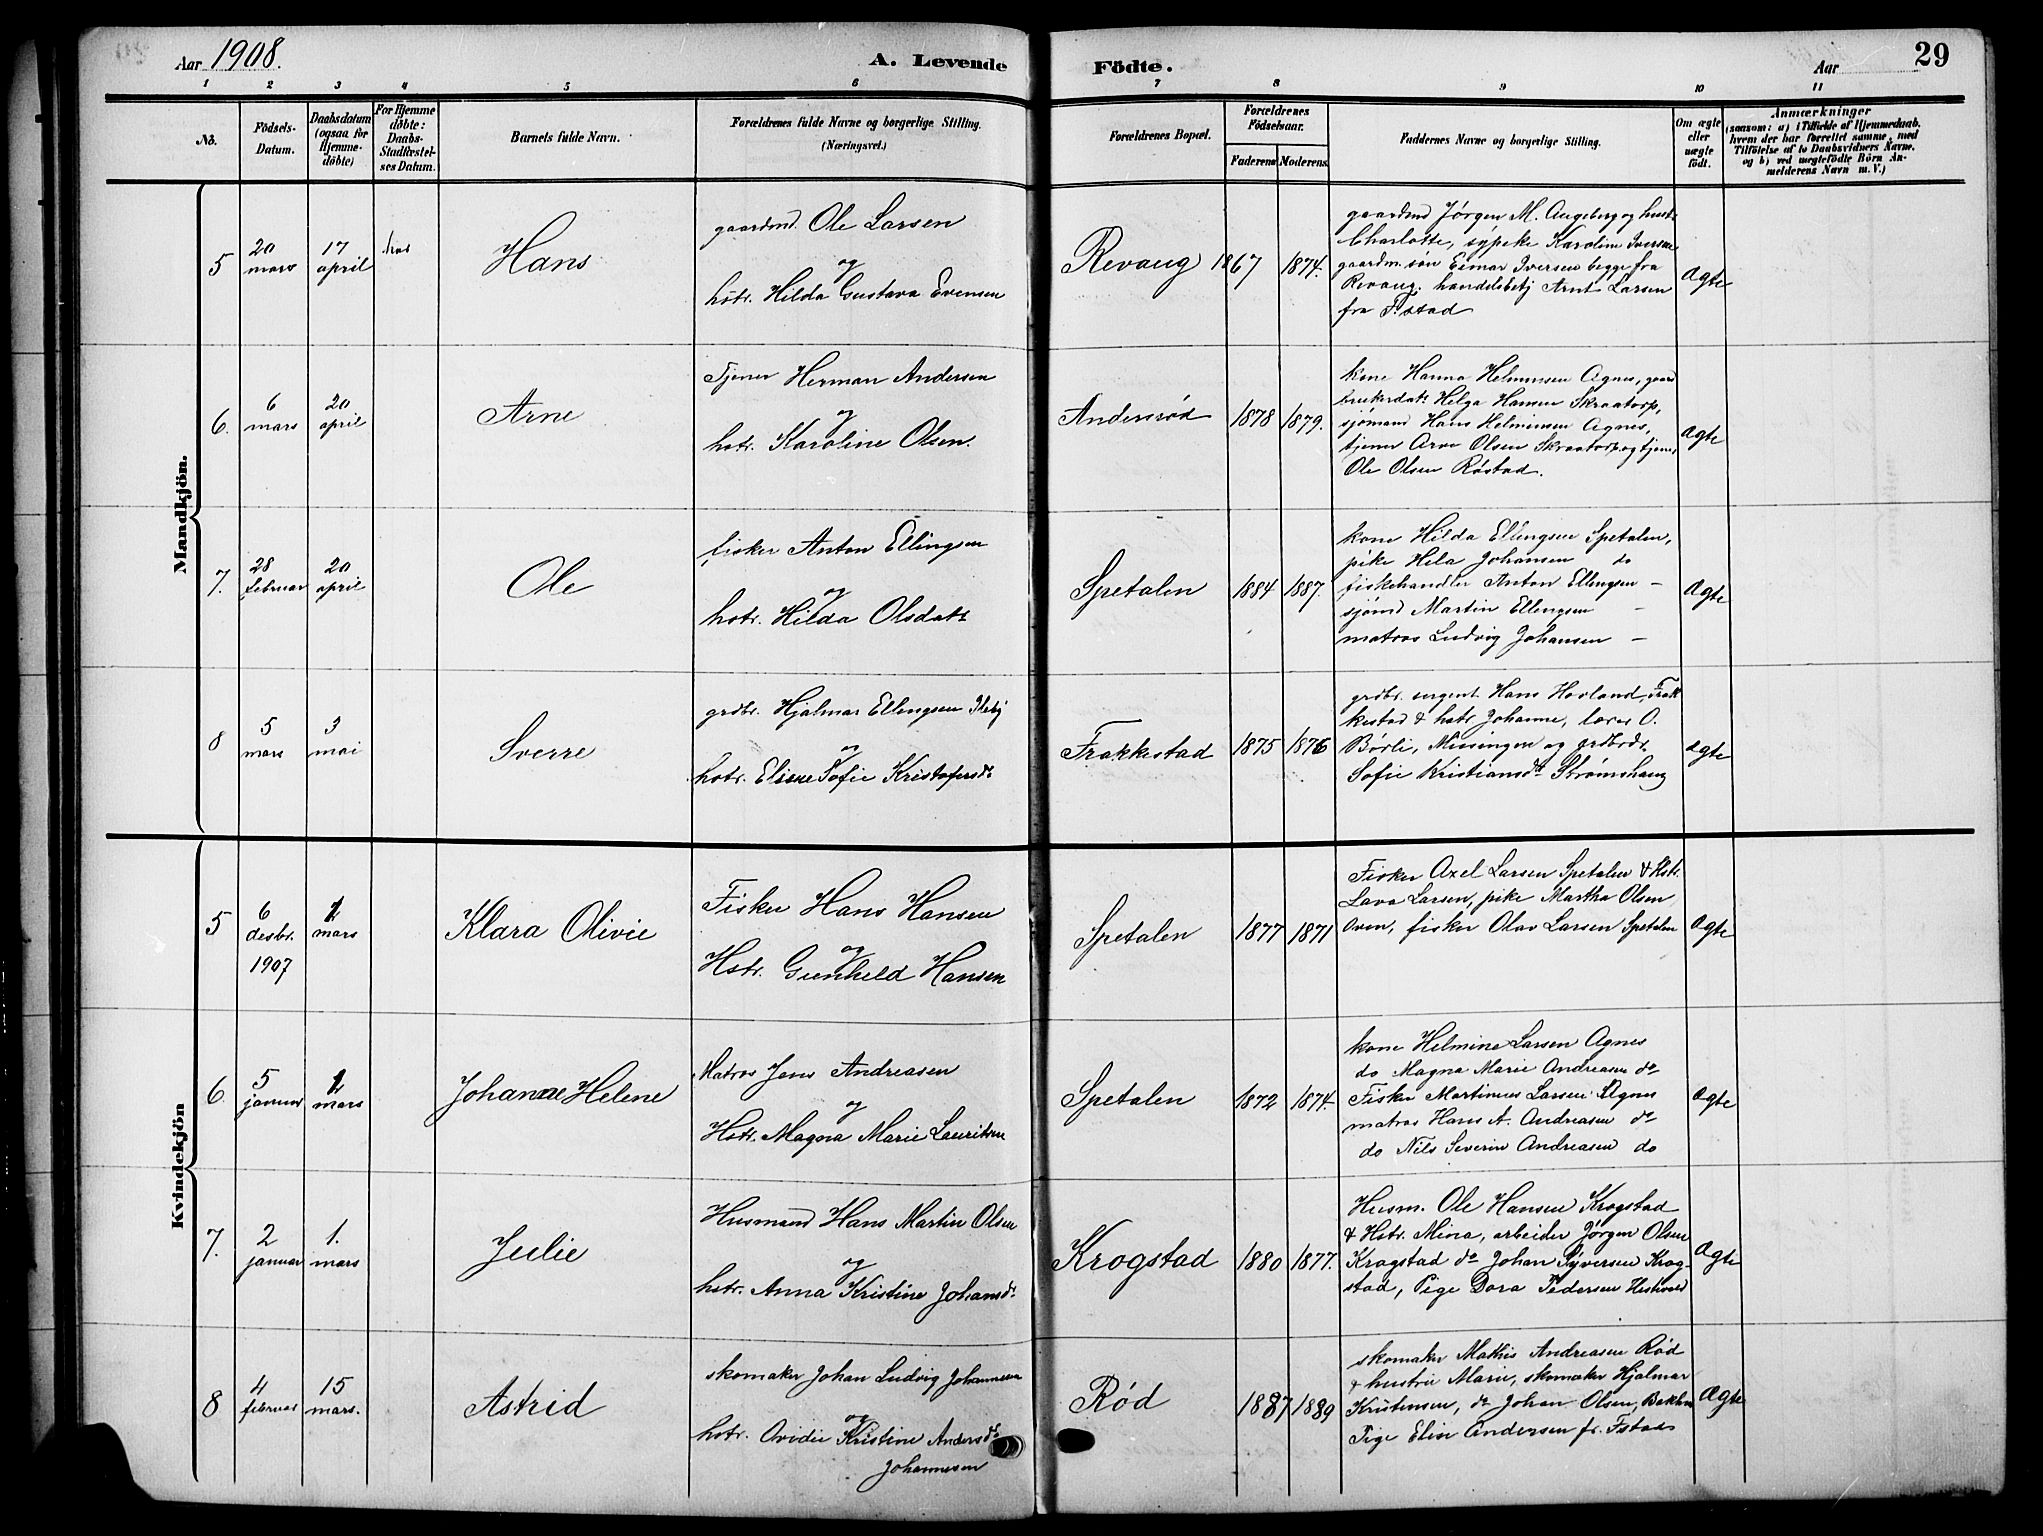 Aar 1908.
A. Levende Födte.
Aar
29
1 2 3 4 5 6 7 8 9 10 11
No.
Födsels-Datum.
Daabsdatum (ogsaa for Hjemme-döbte)
For Hjemme döbte: Daabs-Stadfæstelses Datum.
Barnets fulde Navn.
Forældrenes fulde Navne og borgerlige Stilling. (Næringsvei.)
Forældrenes Bopæl.
Forældrenes Födselsaar.
Faderens Moderens.
Faddernes Navne og borgerlige Stilling.
Om ægte eller uægte födt.
Anmærkninger
(saasom: a) i Tilfælde af Hjemmedaab.
hvem der har forrettet samme, med
Tilföielse af to Daabsvidners Navne.
og b) ved uægtefödte Börn An-
melderens Navn m. V.)
Mandkjön.
5
20 mars
17 april
Hans
gaardmd. Ole Larsen
og
hstr. Hilda Gustava Evensen
Revaug
1867
1874.
gaardmd Jørgen M. Augeberg og hustr
Charlotte, sypike Karoline Iversen
gaardm. søn Eimar Iversen begge fra
Revaug. handelsbetj Arnt Larsen
fra F.stad
Ægte
6.
6 mars
20 april
Arne
Tjener Herman Andersen
og
hstr. Karoline Olsen.
Andersrød
1878
1879.
kone Hanna Helminsen Agnes, gaard
brukerdatr Helga Hansen Skraatorp,
sjømand Hans Helminsen Agnes,
tjener Arve Olsen Skraatorp og tjener
Ole Olsen Røstad.
Ægte
7.
28 februar
20 april
Ole
fisker Anton Ellingsen
og
hstr. Hilda Olsdatr
Spetalen
1884
1887.
kone Hilda Ellingsen Spetalen,
pike Hila Johansen do
fiskehandler Anton Ellingsen —
sjømd Martin Ellingsen —
matros Ludvig Johansen —
Ægte
8
5 mars
3 mai
Sverre
grdbr. Hjalmar Ellingsen
og
hstr. Elise Sofie Kristofersdr
Frakkestad
1875
1876
grdbr. sergent Hans Hovland, Frak
kestad & hstr Johanne, lærer O.
Børli, Missingen og grdbrdr.
Sofie Kristiansdt Strømshaug
Ægte
Kvindekjön
5
6 desbr. 1907
1 mars
Klara Olivie
Fisker Hans Hansen
og
Hstr. Gunhild Hansen
Spetalen
1877
1871
Fisker Axel Larsen Spetalen & Hstr.
Lava Larsen, pike Martha Olsen
Oven, fisker Olav Larsen Spetalen
Ægte
6
5 januar
1 mars
Johanne Helene
Matros Jens Andreasen
og
Hstr. Magna Marie Lauritsen
Spetalen
1872
1874.
kone Helmine Larsen Agnes
do Magna Marie Andreasen do
Fisker Martinius Larsen Agnes
matros Hans A. Andreasen do
do Nils Severin Andreasen do
Ægte
7.
2 januar
1. mars
Julie
Husmand Hans Martin Olsen
og
hstr. Anna Kristine Johansdr.
Krogstad
1880
1877.
Husm. Ole Hansen Krogstad
& Hstr. Mina, arbeider Jørgen Olsen
Krogstad do Johan Syversen Krog-
stad, Pige Dora Pedersen Hestvold
Ægte
8
4 februar
15 mars.
Astrid
skomaker Johan Ludvig Johannesen
og
hstr. Ovidie Kristine Andersdr
Johannesen
Rød
1887
1889
skomaker Mathis Andreasen Rød
& hustru Marie, skomaker Hjalmar
Kristensen, do Johan Olsen,
Pige Elise Andersen fr. Fstad
Ægte